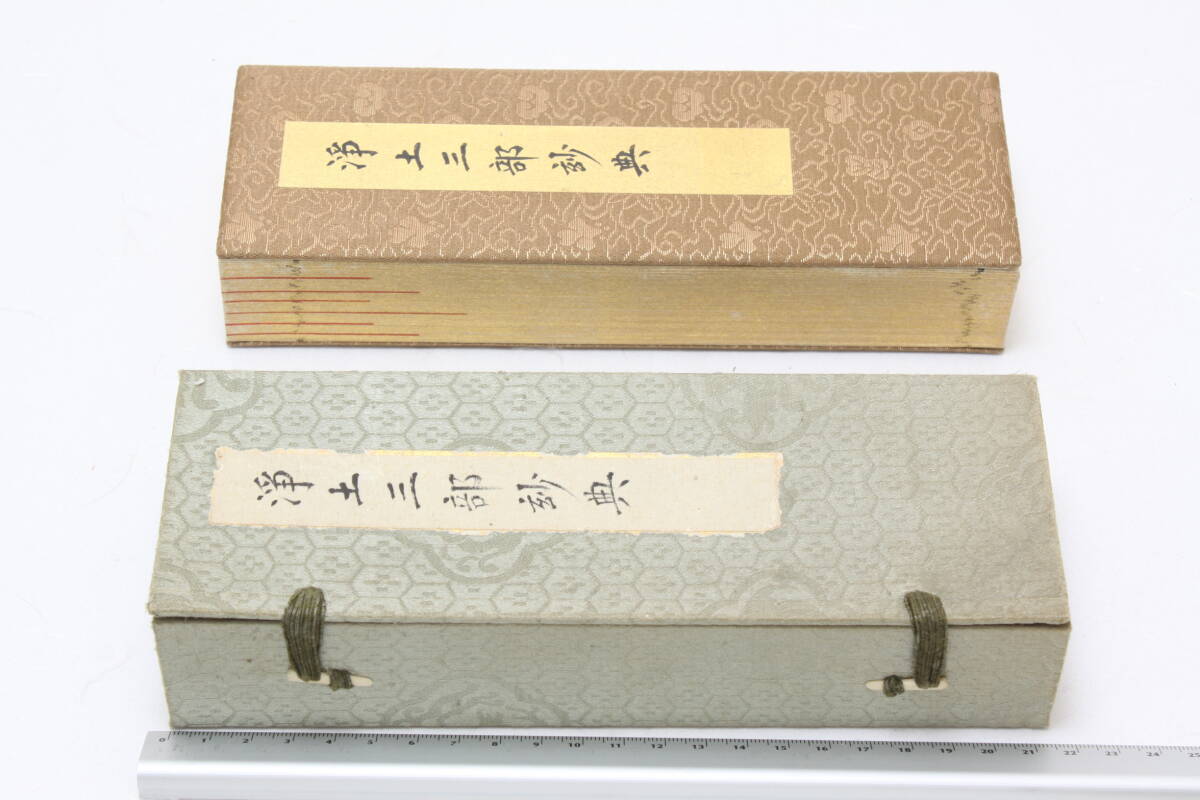 淨土三部妙典
淨土三部妙典
0 1 2 3 4 5 6 7 8 9 10 11 12 13 14 15 16 17 18 19 20 21 22 23 24 25